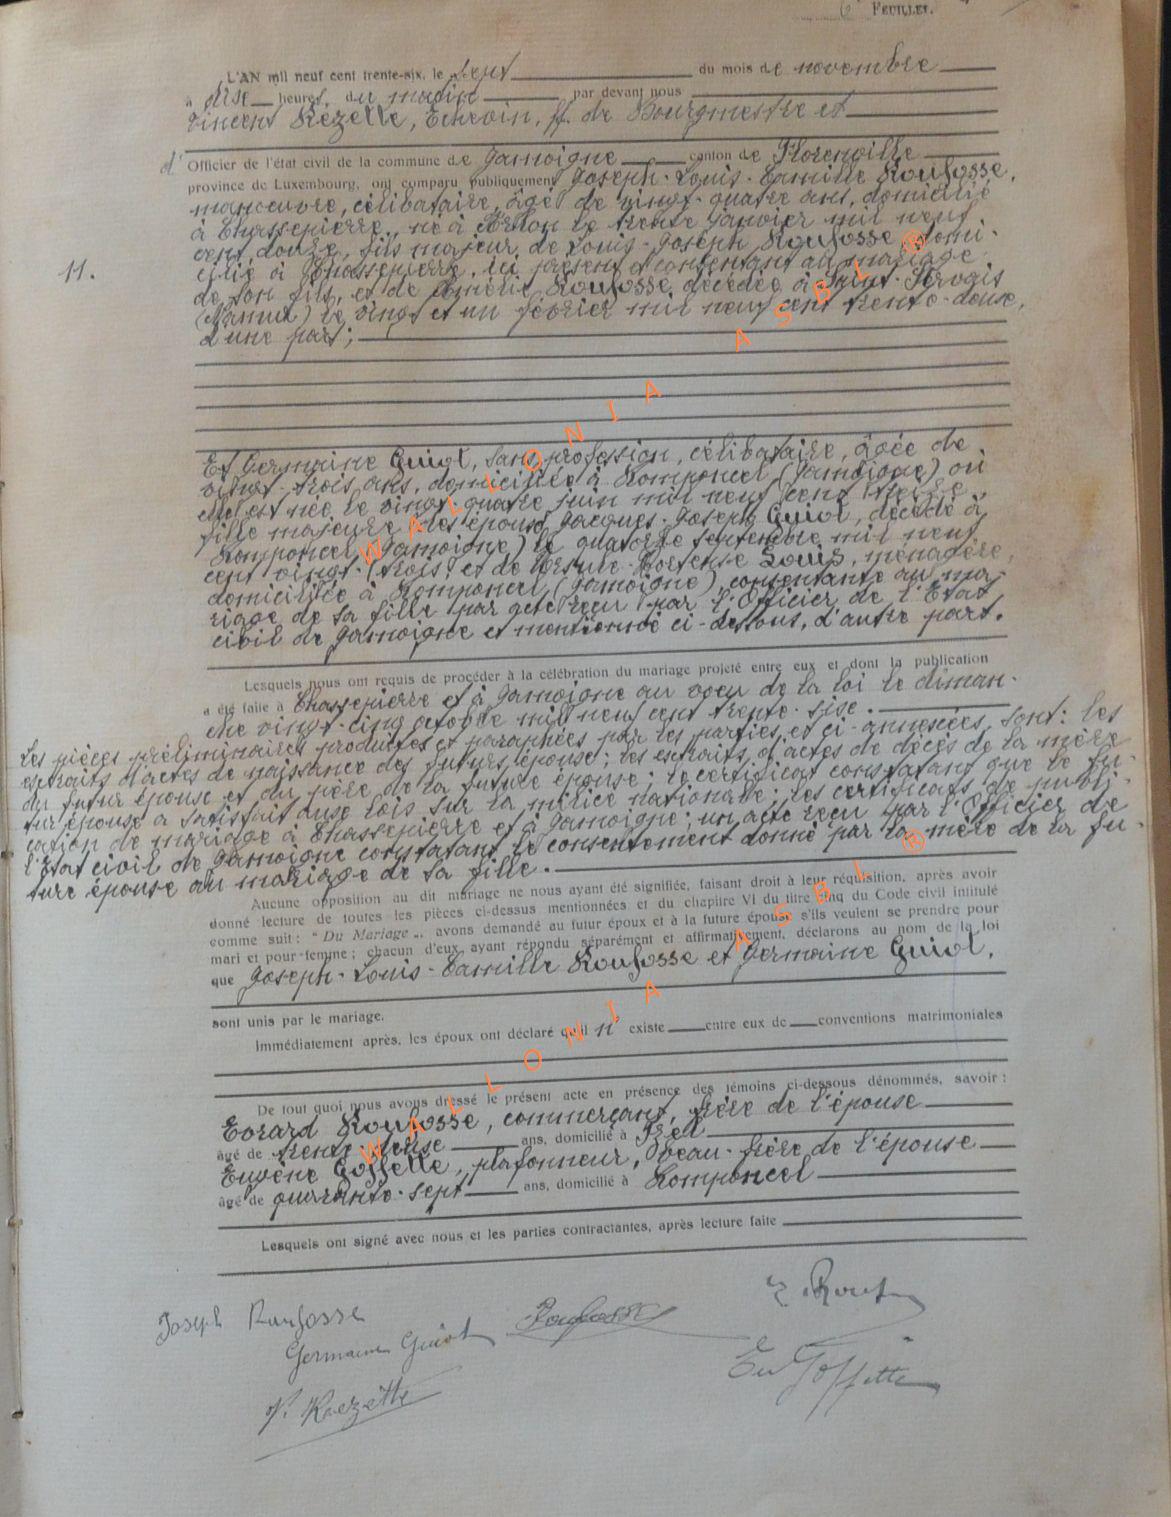 6e FEUILLET.
L'AN mil neuf cent trente-six, le sept du mois de novembre
à dise heures du matin par devant nous
Vincent Rézette, Echevin, ff. de Bourgmestre et
d' Officier de l'état civil de la commune de Jamoigne canton de Florenville
province de Luxembourg, ont comparu publiquement Joseph-Louis-Camille Roufosse,
manoeuvre, célibataire, âgé de vingt-quatre ans, domicilié
à Chassepierre, né à Arlon le trente janvier mil neuf
11.
cent douze, fils majeur de Louis-Joseph Roufosse, domi-
cilié à Chassepierre, ici présent et consentant au mariage
de son fils, et de Amélie Roufosse, décédée à Saint-Servais
(Namur) le vingt et un février mil neuf cent trente-deux,
d'une part;
Et Germaine Guiot, sans profession, célibataire, âgée de
vingt-trois ans, domiciliée à Romponcel (Jamoigne) où
elle est née le vingt-quatre juin mil neuf cent treize,
fille majeure des époux Jacques-Joseph Guiot, décédé à
Romponcel (Jamoigne) le quatorze septembre mil neuf
cent vingt-trois, et de Ursule-Hortense Louis, ménagère,
domiciliée à Romponcel (Jamoigne) consentante au ma-
riage de sa fille par acte reçu par l'Officier de l'Etat
civil de Jamoigne et mentionné ci-dessous, d'autre part.
Lesquels nous ont requis de procéder à la célébration du mariage projeté entre eux et dont la publication
a été faite à Chassepierre et à Jamoigne au voeu de la loi le diman-
che vingt-cinq octobre mil neuf cent trente-sise.
Les pièces préliminaires produites et paraphées par les parties et ci-annexées, sont: les
extraits d'actes de naissance des futurs épouse; les extraits d'actes de décès de la mère
du futur épouse et du père de la future épouse; le certificat constatant que le fu-
tur épouse a satisfait ause lois sur la milice nationale; les certificats de publi-
cation de mariage à Chassepierre et à Jamoigne; un acte reçu par l'Officier de
l'Etat civil de Jamoigne constatant le consentement donné par la mère de la fu-
ture épouse au mariage de sa fille.
Aucune opposition au dit mariage ne nous ayant été signifiée, faisant droit à leur réquisition, après avoir
donné lecture de toutes les pièces ci-dessus mentionnées et du chapitre VI du titre cinq du Code civil intitulé
comme suit : "Du Mariage", avons demandé au futur époux et à la future épouse s'ils veulent se prendre pour
mari et pour femme ; chacun d'eux ayant répondu séparément et affirmativement, déclarons au nom de la loi
que Joseph-Louis-Camille Roufosse et Germaine Guiot,
sont unis par le mariage.
Immédiatement après, les époux ont déclaré qu'il n' existe entre eux de conventions matrimoniales
De tout quoi nous avons dressé le présent acte en présence des témoins ci-dessous dénommés, savoir :
Evrard Roufosse, commerçant, frère de l'épouse
âgé de trente-deuse ans, domicilié à Izel
Eugène Goffette, plafonneur, beau-frère de l'épouse
âgé de quarante-sept ans, domicilié à Romponcel
Lesquels ont signé avec nous et les parties contractantes, après lecture faite
Joseph Roufosse
Germaine Guiot
Roufosse
E. Rouf
V. Rézette
Eu Goffette
WALLONIA ASBL ®
WALLONIA ASBL ®